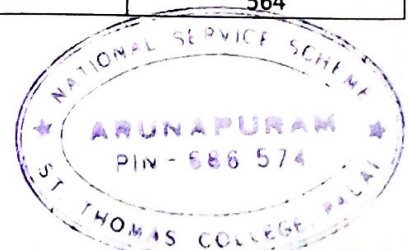 564
NATIONAL SERVICE SCHEME
ARUNAPURAM
PIN - 686 574
ST. THOMAS COLLEGE, PALAI